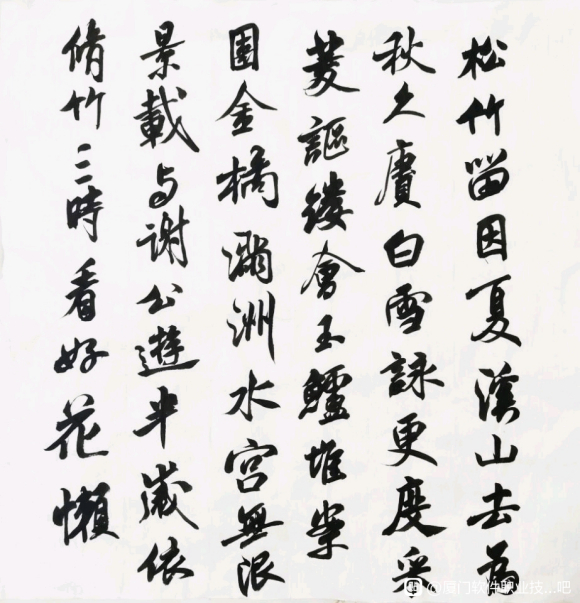 松竹留因夏溪山去為
秋久賡白雪詠更度采
菱謳縷會玉鱸堆案
團金橘滿洲水宮無限
景載与謝公遊半歲依
脩竹三時看好花懶
@厦门软件职业技...吧